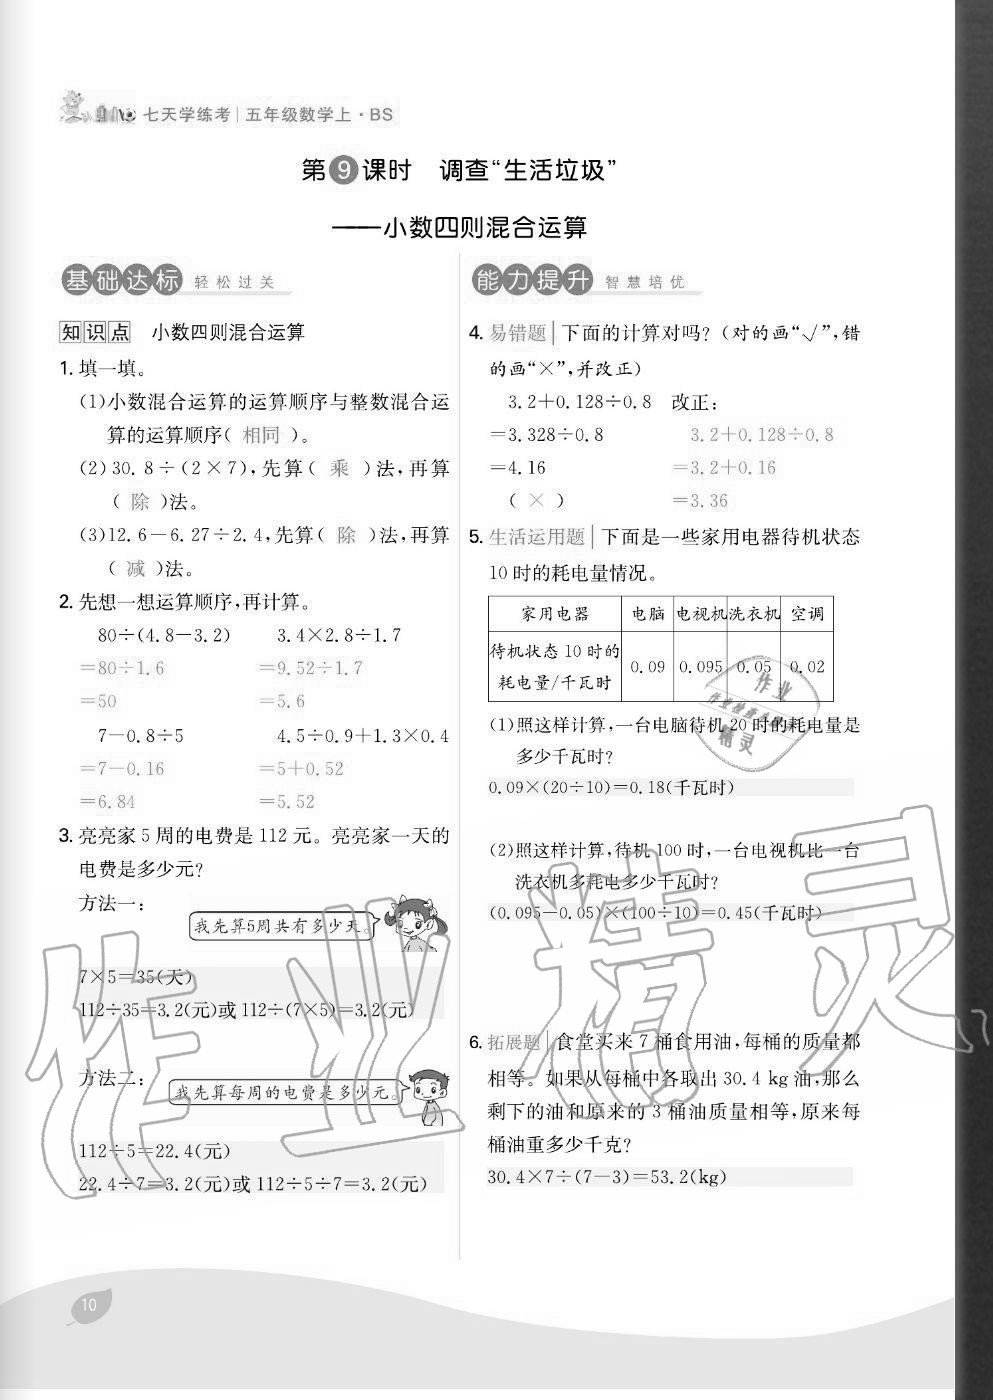 七天学练考|五年级数学上·BS
第9课时 调查“生活垃圾”
——小数四则混合运算
基础达标 轻松过关
知识点 小数四则混合运算
1. 填一填。
(1)小数混合运算的运算顺序与整数混合运
算的运算顺序( 相同 )。
(2)30.8÷(2×7),先算( 乘 )法,再算
( 除 )法。
(3)12.6-6.27÷2.4,先算( 除 )法,再算
( 减 )法。
2. 先想一想运算顺序,再计算。
80÷(4.8-3.2) 3.4×2.8÷1.7
=80÷1.6 =9.52÷1.7
=50 =5.6
7-0.8÷5 4.5÷0.9+1.3×0.4
=7-0.16 =5+0.52
=6.84 =5.52
3. 亮亮家5周的电费是112元。亮亮家一天的
电费是多少元?
方法一:
我先算5周共有多少天。
7×5=35(天)
112÷35=3.2(元)或112÷(7×5)=3.2(元)
方法二:
我先算每周的电费是多少元。
112÷5=22.4(元)
22.4÷7=3.2(元)或112÷5÷7=3.2(元)
能力提升 智慧培优
4. 易错题|下面的计算对吗?(对的画“√”,错
的画“×”,并改正)
3.2+0.128÷0.8 改正:
=3.328÷0.8 3.2+0.128÷0.8
=4.16 =3.2+0.16
( × ) =3.36
5. 生活运用题|下面是一些家用电器待机状态
10时的耗电量情况。
家用电器 电脑 电视机 洗衣机 空调
待机状态10时的
耗电量/千瓦时 0.09 0.095 0.05 0.02
(1)照这样计算,一台电脑待机20时的耗电量是
多少千瓦时?
0.09×(20÷10)=0.18(千瓦时)
(2)照这样计算,待机100时,一台电视机比一台
洗衣机多耗电多少千瓦时?
(0.095-0.05)×(100÷10)=0.45(千瓦时)
6. 拓展题|食堂买来7桶食用油,每桶的质量都
相等。如果从每桶中各取出30.4 kg油,那么
剩下的油和原来的3桶油质量相等,原来每
桶油重多少千克?
30.4×7÷(7-3)=53.2(kg)
10
作业精灵
作业
精灵